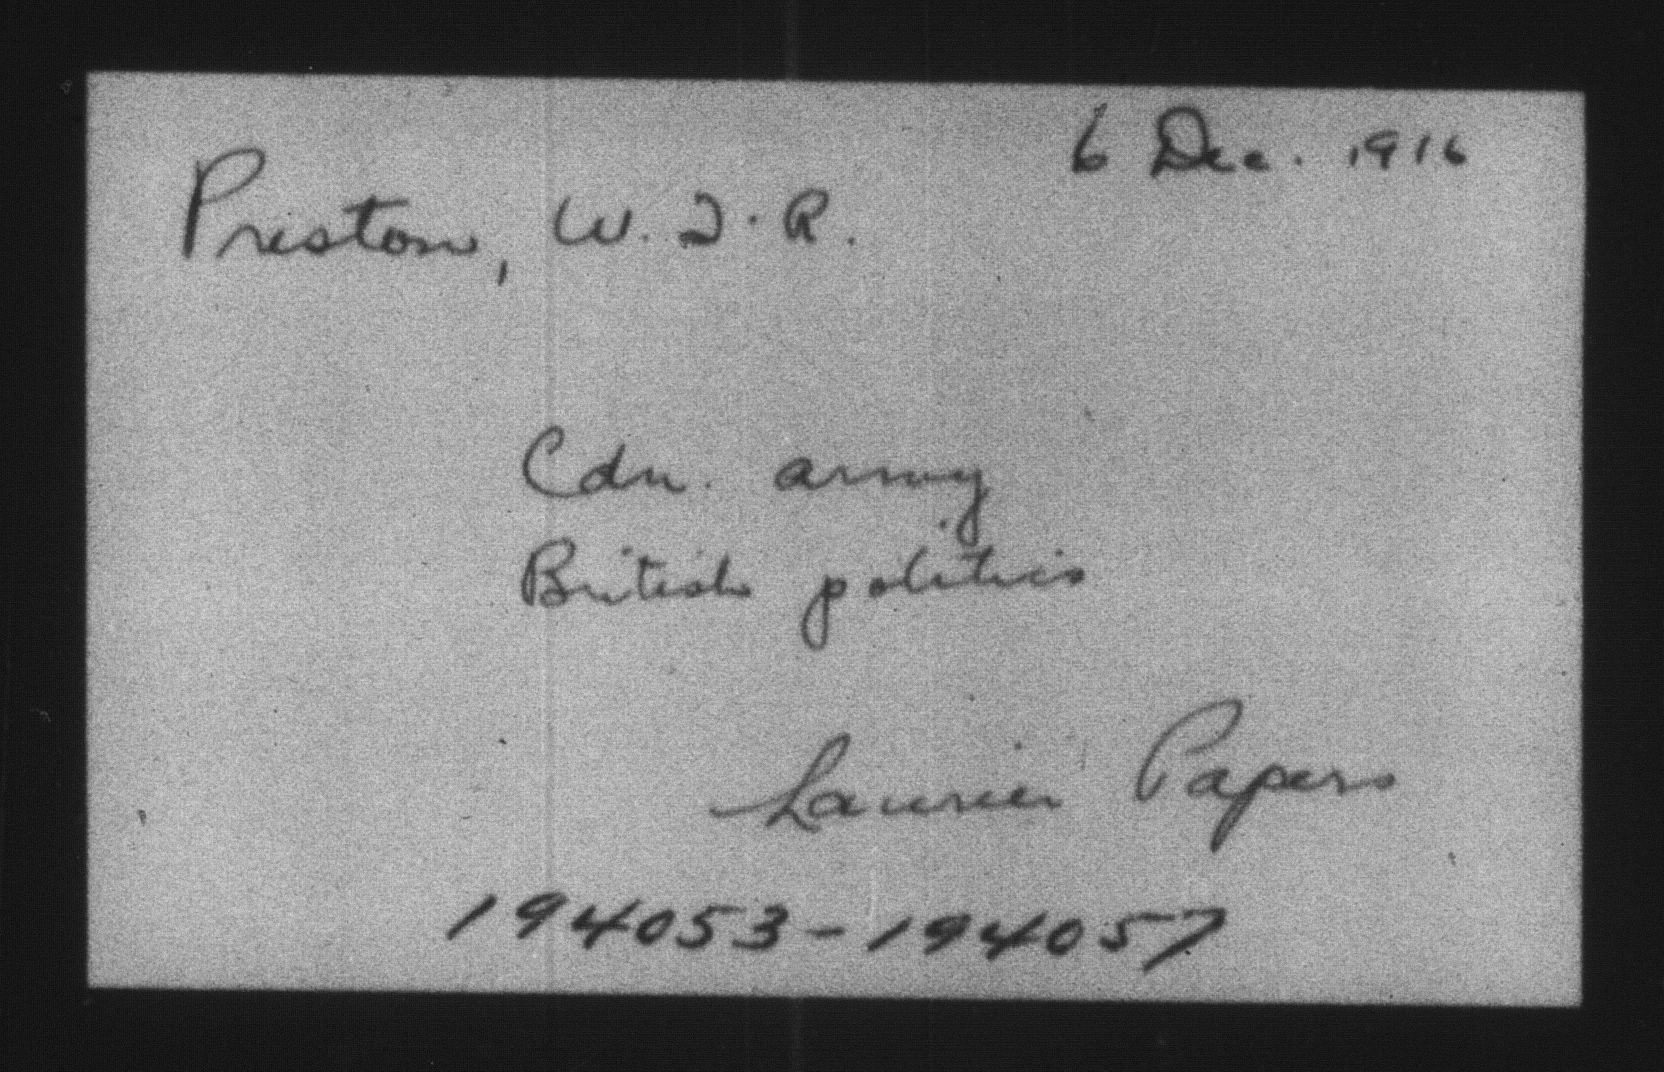 6 Dec. 1916
Preston, W. T. R.
Cdn. army
British politics
Laurier Papers
194053-194057